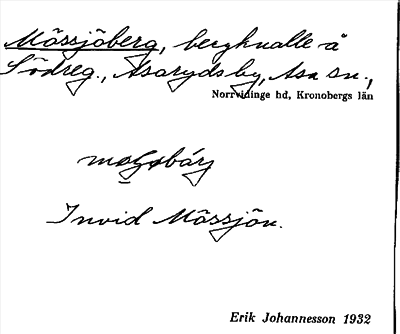 Mössjöberg, bergknalle å
Södreg., Asaryds by, Asa sn.,
Norrvidinge hd, Kronobergs län
Invid Mössjön.
Erik Johannesson 1932